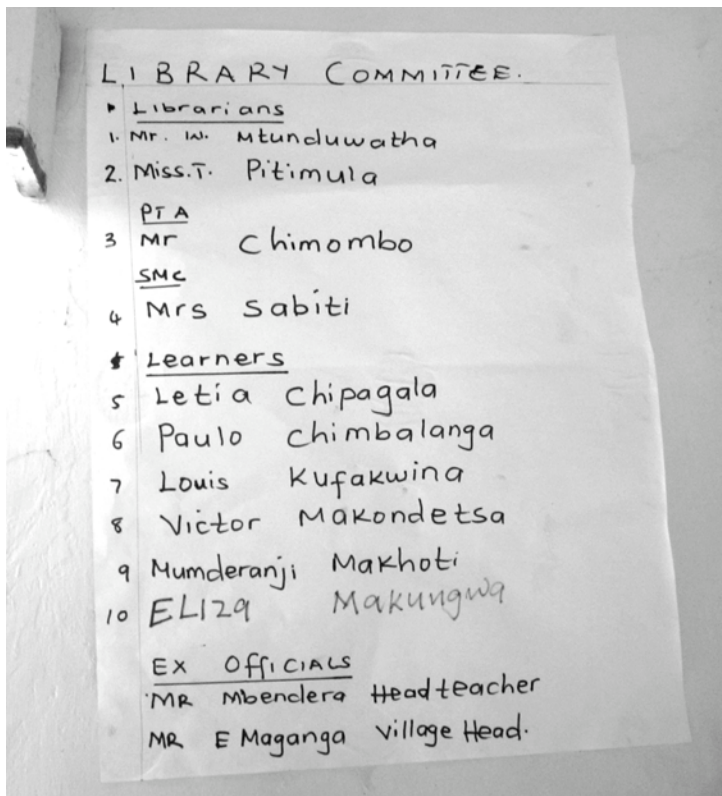 LIBRARY COMMITTEE.
Librarians
1. Mr. W. Mtunduwatha
2. Miss. T. Pitimula
PTA
3 Mr Chimombo
SMC
4 Mrs Sabiti
Learners
5 Letia Chipagala
6 Paulo Chimbalanga
7 Louis Kufakwina
8 Victor Makondetsa
9 Mumderanji Makhoti
10 ELIZa Makungwa
EX OffICIALS
MR Mbendera Headteacher
MR E Maganga Village Head.